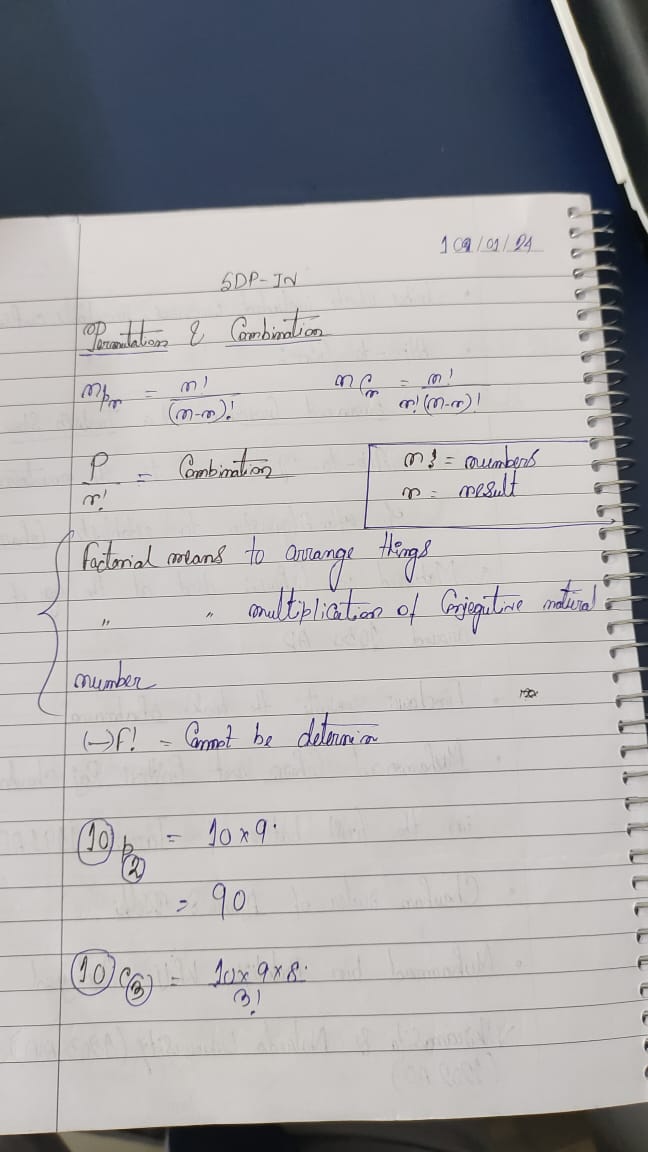 109/01/24
SDP-IN
Permutation & Combination
nPr = n!/(n-r)! nCr = n!/r!(n-r)!
P/r! = Combination
n! = numbers
r = result
factorial means to arrange things
" " multiplication of Conjegutive natural
number
(-)f! = Cannot be determin
10P2 = 10×9
= 90
10C3 = 10×9×8/3!